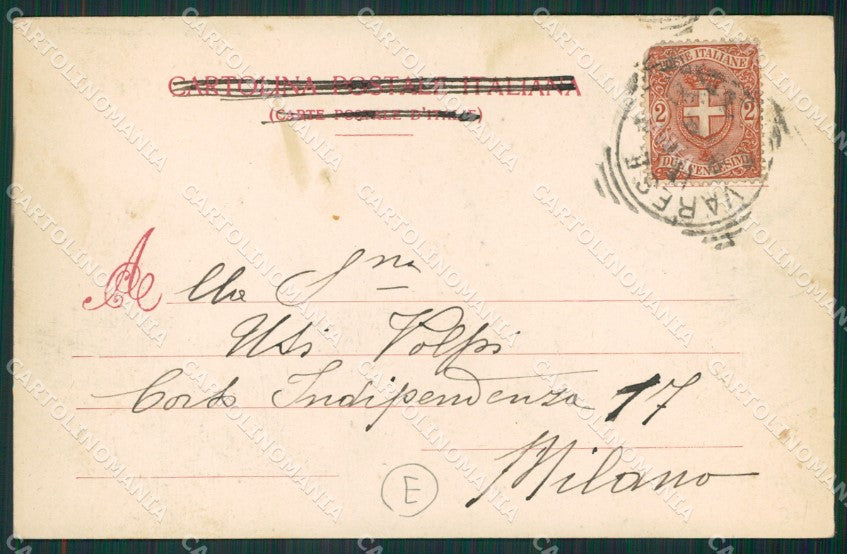 CARTOLINA POSTALE ITALIANA
(CARTE POSTALE D'ITALIE)
POSTE ITALIANE
2 2
DUE CENTESIMI
VARESE
Alla Sna
Usi Volpi
Corso Indipendenza 17
Milano
E
CARTOLINOMANIA